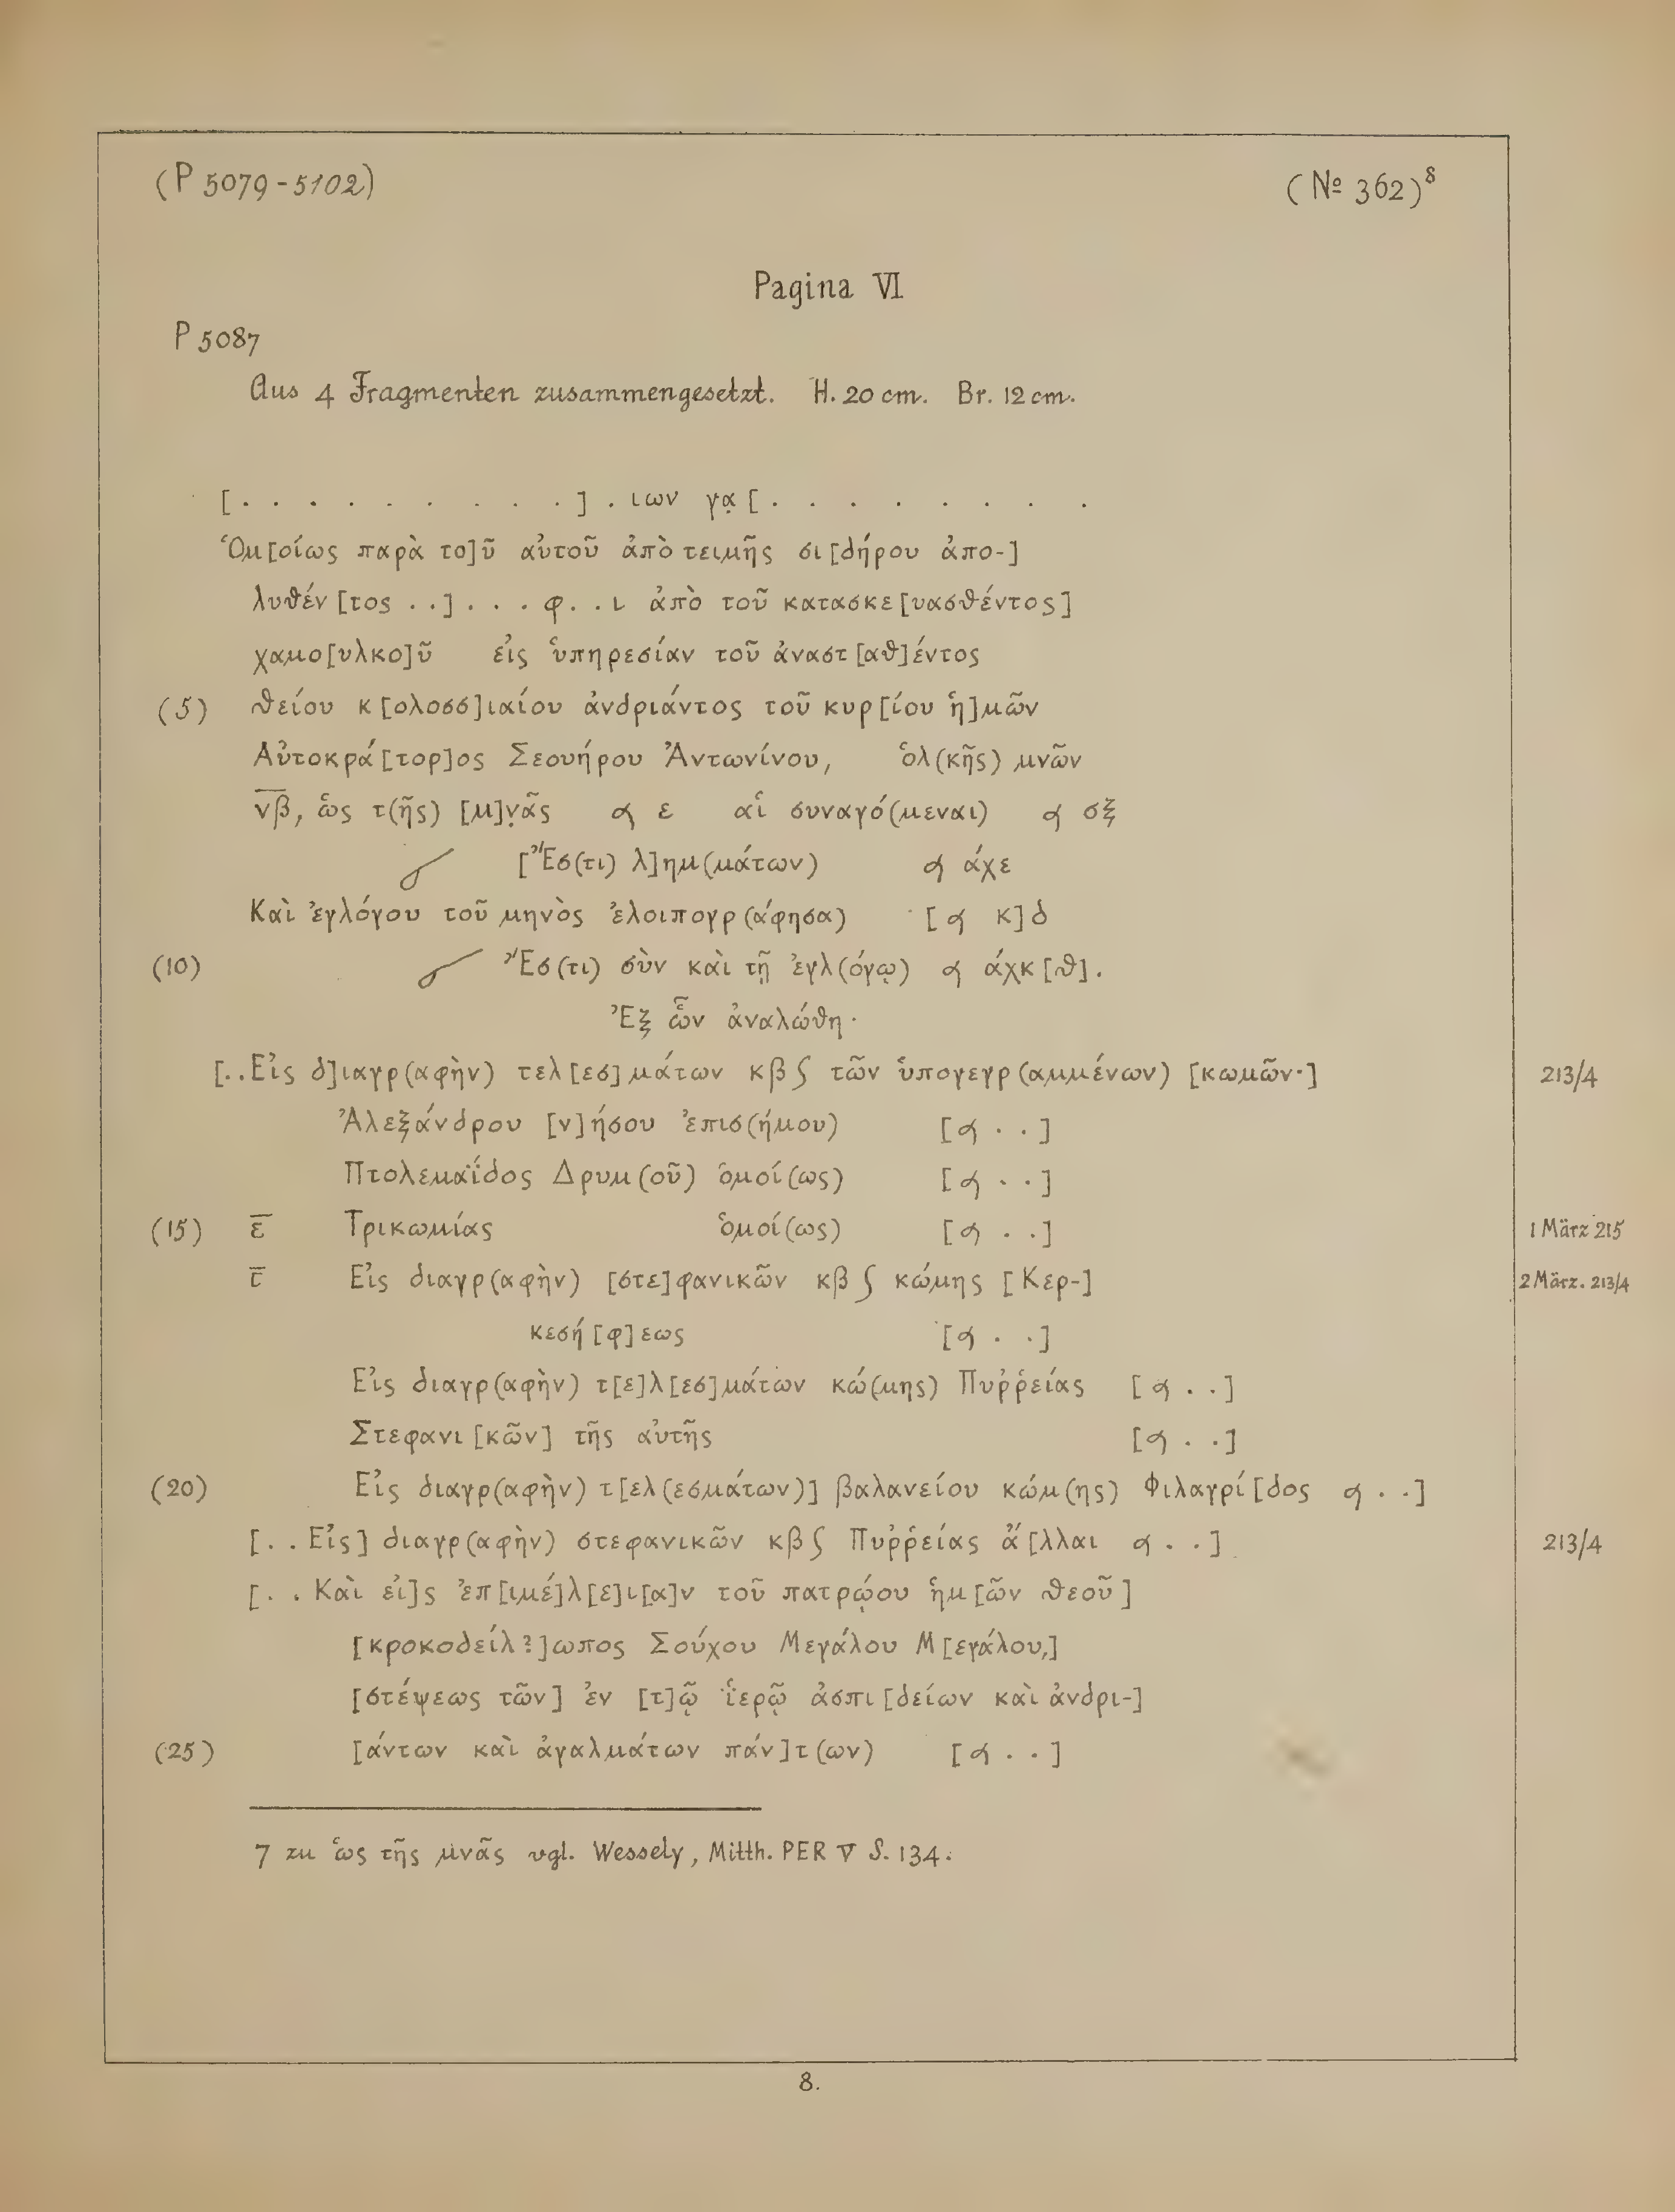 (P 5079-5102) (№ 362)⁸
Pagina VI
P 5087
Aus 4 Fragmenten zusammengesetzt. H. 20 cm. Br. 12 cm.
[. . . . . . . . .] . ιων γα̣ [. . . . . . . . .
Ὁμ[οίως παρὰ το]ῦ αὐτοῦ ἀπὸ τειμῆς σι[δήρου ἀπο-]
λυθέν[τος . .] . . . φ . . ι ἀπὸ τοῦ κατασκε[υασθέντος]
χαμο[υλκο]ῦ εἰς ὑπηρεσίαν τοῦ ἀναστ[αθ]έντος
(5) θείου κ[ολοσσ]ιαίου ἀνδριάντος τοῦ κυρ[ίου ἡ]μῶν
Αὐτοκρά[τορ]ος Σεουήρου Ἀντωνίνου, ὁλ(κῆς) μνῶν
ν̅β̅, ὡς τ(ῆς) [μ]ν̣ᾶς 𐅻 ε αἱ συναγό(μεναι) 𐅻 σξ
[Ἔσ(τι) λ]ημ(μάτων) 𐅻 άχε
Καὶ ἐγλόγου τοῦ μηνὸς ἐλοιπογρ(άφησα) [𐅻 κ]δ
(10) Ἔσ(τι) σὺν καὶ τῇ ἐγλ(όγῳ) 𐅻 άχκ[θ].
Ἐξ ὧν ἀναλώθη·
[. . Εἰς δ]ιαγρ(αφὴν) τελ[εσ]μάτων κβ ʃ τῶν ὑπογεγρ(αμμένων) [κωμῶν·] 213/4
Ἀλεξάνδρου [ν]ήσου ἐπισ(ήμου) [𐅻 . .]
Πτολεμαΐδος Δρυμ(οῦ) ὁμοί(ως) [𐅻 . .]
(15) ε̅ Τρικωμίας ὁμοί(ως) [𐅻 . .] 1 März 215
ϛ̅ Εἰς διαγρ(αφὴν) [στε]φανικῶν κβ ʃ κώμης [Κερ-] 2 März. 213/4
κεσή[φ]εως [𐅻 . .]
Εἰς διαγρ(αφὴν) τ[ε]λ[εσ]μάτων κώ(μης) Πυῤῥείας [𐅻 . .]
Στεφανι[κῶν] τῆς αὐτῆς [𐅻 . .]
(20) Εἰς διαγρ(αφὴν) τ[ελ(εσμάτων)] βαλανείου κώμ(ης) Φιλαγρί[δος 𐅻 . .]
[. . Εἰς] διαγρ(αφὴν) στεφανικῶν κβ ʃ Πυῤῥείας ἄ[λλαι 𐅻 . .] 213/4
[. . Καὶ εἰ]ς ἐπ[ιμέ]λ[ε]ι[α]ν τοῦ πατρῴου ἡμ[ῶν θεοῦ]
[κροκοδείλ?]ωπος Σούχου Μεγάλου Μ[εγάλου,]
[στέψεως τῶν] ἐν [τ]ῷ ἱερῷ ἀσπι[δείων καὶ ἀνδρι-]
(25) [άντων καὶ ἀγαλμάτων πάν]τ(ων) [𐅻 . .]
7 zu ὡς τῆς μνᾶς vgl. Wessely, Mitth. PER V S. 134.
8.